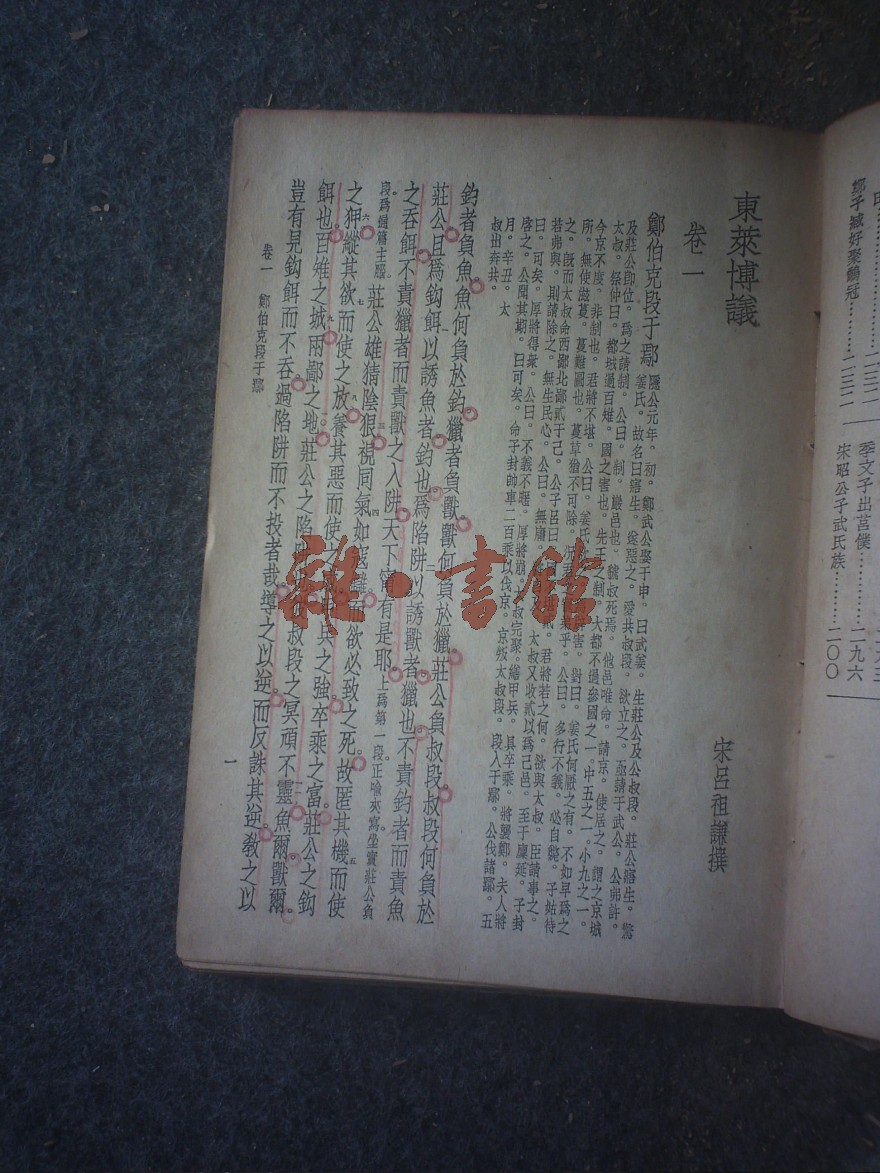 東萊博議
卷一
宋呂祖謙撰
鄭伯克段于鄢
隱公元年。初。鄭武公娶于申。曰武姜。生莊公及公叔段。莊公寤生。驚
姜氏。故名曰寤生。遂惡之。愛共叔段。欲立之。亟請于武公。公弗許。
及莊公即位。爲之請制。公曰。制。巖邑也。虢叔死焉。他邑唯命。請京。使居之。謂之京城
太叔。祭仲曰。都城過百雉。國之害也。先王之制。大都不過參國之一。中五之一。小九之一。
今京不度。非制也。君將不堪。公曰。姜氏
害。對曰。姜氏何厭之有。不如早爲之
所。無使滋蔓。蔓難圖也。蔓草猶不可除。況君
乎。公曰。多行不義。必自斃。子姑待
之。旣而太叔命西鄙北鄙貳于己。公子呂曰
君將若之何。欲與太叔。臣請事之。
若弗與。則請除之。無生民心。公曰。無庸
太叔又收貳以爲己邑。至于廩延。子封
曰。可矣。厚將得衆。公曰。不義不暱。厚將崩。
太叔完聚。繕甲兵。具卒乘。將襲鄭。夫人將
啓之。公聞其期。曰可矣。命子封帥車二百乘以伐京。京叛太叔段。段入于鄢。公伐諸鄢。五
月。辛丑。太
叔出奔共。
釣者負魚。魚何負於釣。獵者負獸。獸何負於獵。莊公負叔段。叔段何負於
莊公。且爲鈎餌以誘魚者。釣也。爲陷阱以誘獸者。獵也。不責釣者而責魚
之吞餌。不責獵者而責獸之入阱。天下寧有是耶。上爲第一段正喻夾寫坐實莊公負
段。爲通篇主腦。莊公雄猜陰狠。視同氣如寇讎。而欲必致之死。故匿其機而使
之狎。縱其欲而使之放。養其惡而使之
兵之強。卒乘之富。莊公之鈎
餌也。百雉之城。兩鄙之地。莊公之陷
叔段之冥頑不靈。魚爾。獸爾。
豈有見鈎餌而不吞。過陷阱而不投者哉。導之以逆。而反誅其逆。教之以
卷一 鄭伯克段于鄢
一
鄭子臧好聚鷸冠………二三二
二三二
季文子出莒僕………二九六
宋昭公子武氏族………二〇〇
雜·書館